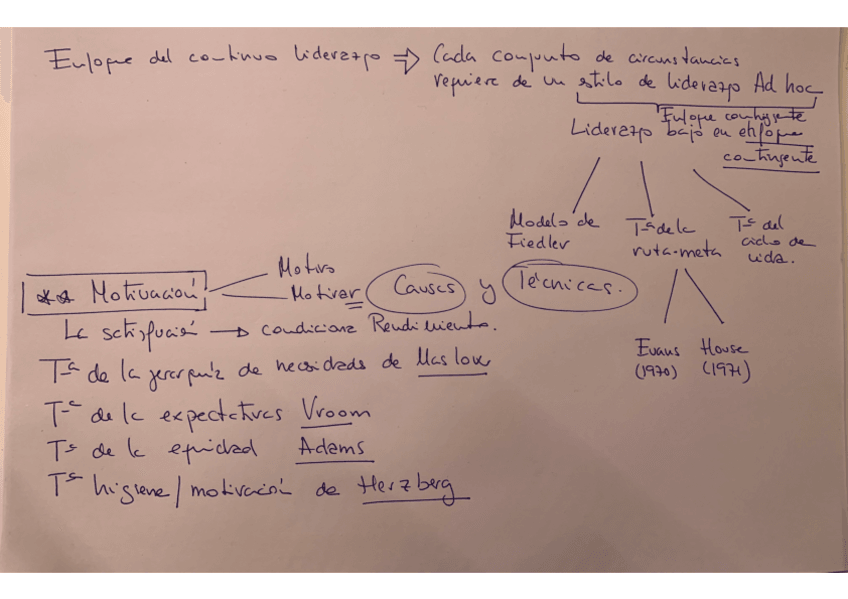 Enfoque del continuo liderazgo ⇒ Cada conjunto de circunstancias
requiere de un estilo de liderazgo Ad hoc
Enfoque contingente
Liderazgo bajo en enfoque
contingente
Modelo de
Fiedler
Tª de la
ruta-meta
Tª del
ciclo de
vida.
Evans
(1970)
House
(1971)
** Motivación
Motivo
Motivar
Causas y Técnicas.
La satisfación → condiciona Rendimiento.
Tª de la jerarquía de necesidades de Maslow
Tª de la expectativas Vroom
Tª de la equidad Adams
Tª higiene/motivación de Herzberg